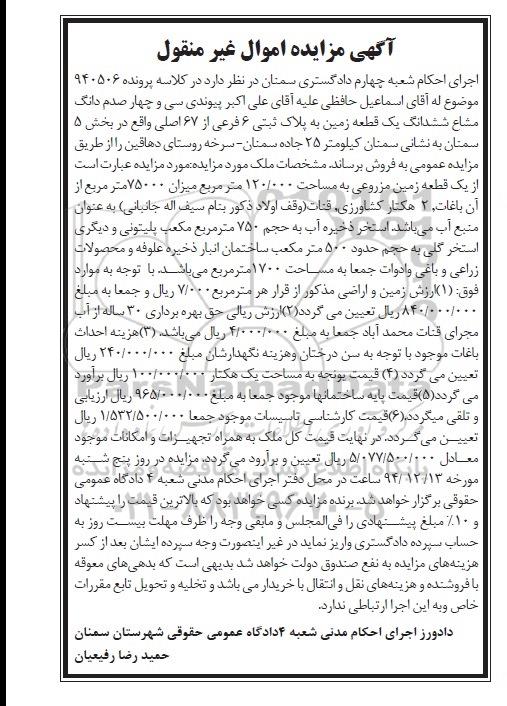 آگهی مزایده اموال غیر منقول
اجرای احکام شعبه چهارم دادگستری سمنان در نظر دارد در کلاسه پرونده ۹۴۰۵۰۶
موضوع له آقای اسماعیل حافظی علیه آقای علی اکبر پیوندی سی و چهار صدم دانگ
مشاع ششدانگ یک قطعه زمین به پلاک ثبتی ۶ فرعی از ۶۷ اصلی واقع در بخش ۵
سمنان به نشانی سمنان کیلومتر ۲۵ جاده سمنان-سرخه روستای دهاقین را از طریق
مزایده عمومی به فروش برساند. مشخصات ملک مورد مزایده:مورد مزایده عبارت است
از یک قطعه زمین مزروعی به مساحت ۱۲۰/۰۰۰ متر مربع میزان ۷۵۰۰۰متر مربع از
آن باغات، ۲ هکتار کشاورزی، قنات(وقف اولاد ذکور بنام سیف اله جانبانی) به عنوان
منبع آب می‌باشد. استخر ذخیره آب به حجم ۷۵۰ مترمربع مکعب پلیتونی و دیگری
استخر گلی به حجم حدود ۵۰۰ متر مکعب ساختمان انبار ذخیره علوفه و محصولات
زراعی و باغی وادوات جمعا به مساحت ۱۷۰۰مترمربع می‌باشد. با توجه به موارد
فوق: (۱)ارزش زمین و اراضی مذکور از قرار هر مترمربع۷/۰۰۰ ریال و جمعا به مبلغ
۸۴۰/۰۰۰/۰۰۰ ریال تعیین می گردد(۲)ارزش ریالی حق بهره برداری ۳۰ ساله از آب
مجرای قنات محمد آباد جمعا به مبلغ ۴/۰۰۰/۰۰۰ ریال می‌باشد. (۳)هزینه احداث
باغات موجود با توجه به سن درختان وهزینه نگهدارشان مبلغ ۲۴۰/۰۰۰/۰۰۰ ریال
تعیین می گردد (۴) قیمت یونجه به مساحت یک هکتار ۱۰۰/۰۰۰/۰۰۰ ریال برآورد
می گردد(۵)قیمت پایه ساختمانها موجود جمعا به مبلغ۹۶۵/۰۰۰/۰۰۰ ریال ارزیابی
و تلقی میگردد.(۶)قیمت کارشناسی تاسیسات موجود جمعا ۱/۵۳۲/۵۰۰/۰۰۰ ریال
تعیین می‌گردد. در نهایت قیمت کل ملک به همراه تجهیزات و امکانات موجود
معادل ۵/۰۷۷/۵۰۰/۰۰۰ ریال تعیین و برآورد می‌گردد. مزایده در روز پنج شنبه
مورخه ۹۴/۱۲/۱۳ ساعت در محل دفتر اجرای احکام مدنی شعبه ۴ دادگاه عمومی
حقوقی برگزار خواهد شد. برنده مزایده کسی خواهد بود که بالاترین قیمت را پیشنهاد
و ۱۰٪ مبلغ پیشنهادی را فی‌المجلس و مابقی وجه را ظرف مهلت بیست روز به
حساب سپرده دادگستری واریز نماید در غیر اینصورت وجه سپرده ایشان بعد از کسر
هزینه‌های مزایده به نفع صندوق دولت خواهد شد بدیهی است که بدهی‌های معوقه
با فروشنده و هزینه‌های نقل و انتقال با خریدار می باشد و تخلیه و تحویل تابع مقررات
خاص وبه این اجرا ارتباطی ندارد.
دادورز اجرای احکام مدنی شعبه ۴دادگاه عمومی حقوقی شهرستان سمنان
حمید رضا رفیعیان